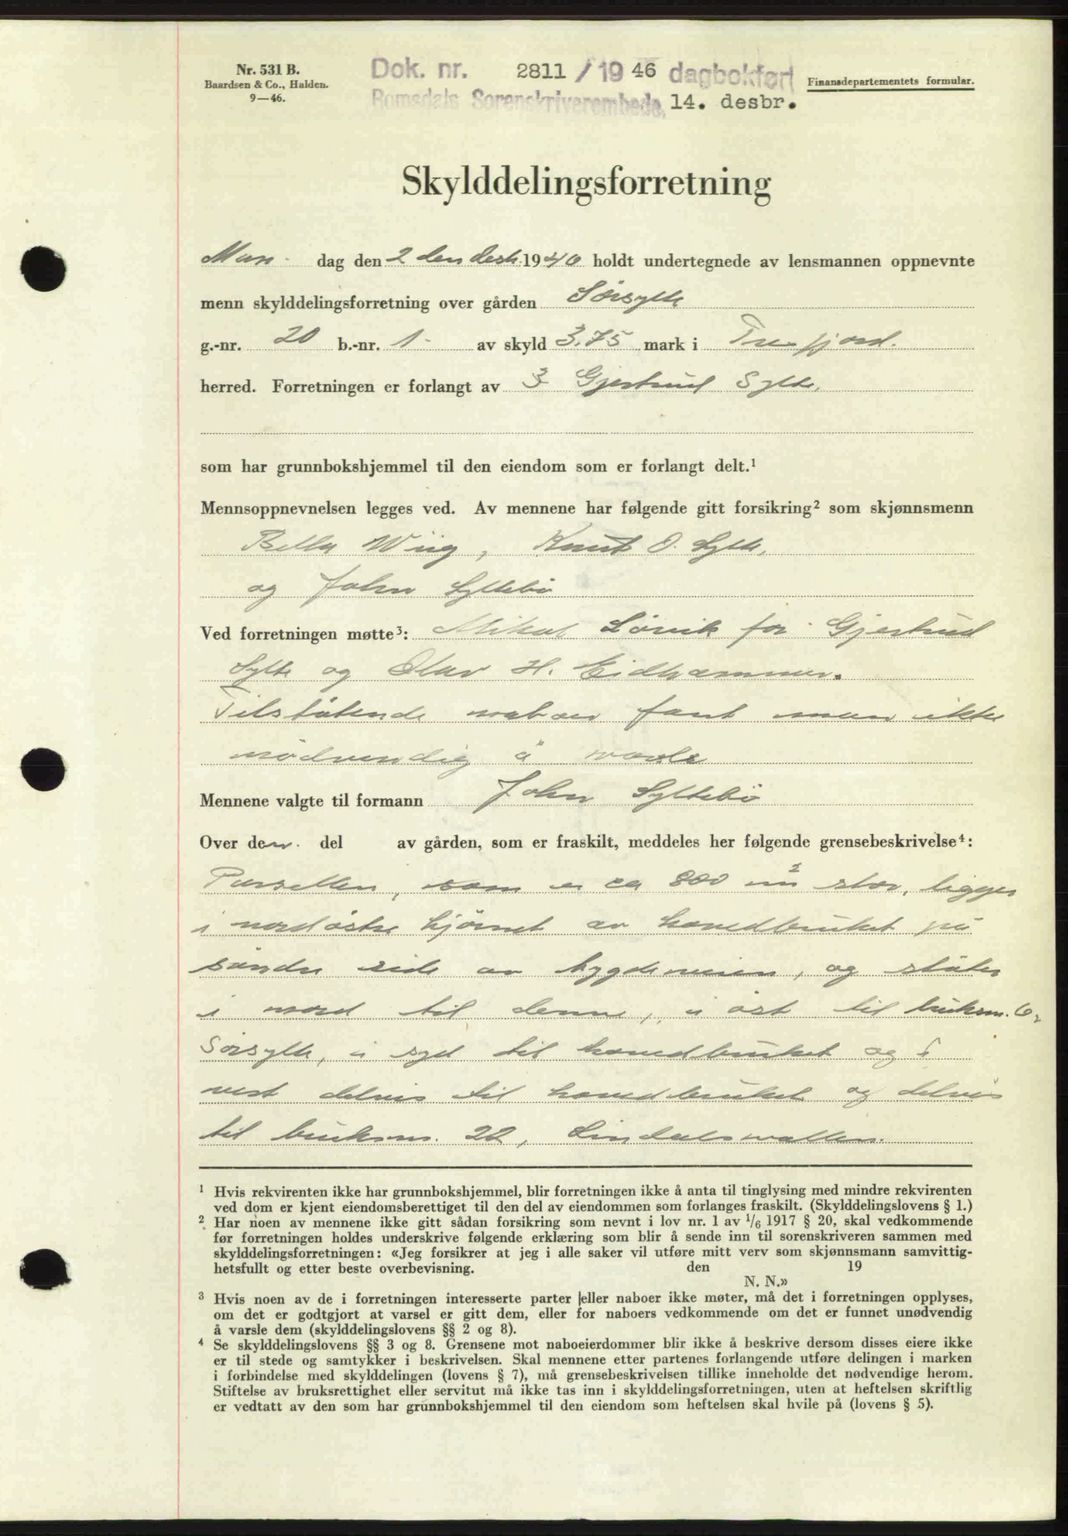 Nr. 531 B.
Baardsen & Co., Halden.
9—46.
Dok. nr. 2811 / 19 46 dagbokført
Romsdals Sorenskriverembede, 14. desbr.
Finansdepartementets formular.
Skylddelingsforretning
Man- dag den 2 den desbr. 1946 holdt undertegnede av lensmannen oppnevnte
menn skylddelingsforretning over gården Sørsylte
g.-nr. 20 b.-nr. 1- av skyld 3.75 mark i Tresfjord.
herred. Forretningen er forlangt av Gjertrud Sylte.
som har grunnbokshjemmel til den eiendom som er forlangt delt.¹
Mennsoppnevnelsen legges ved. Av mennene har følgende gitt forsikring² som skjønnsmenn
Wiig, Knut O. Sylte,
og John Syltebø
Ved forretningen møtte³: Mikal Løvik for Gjertrud
Sylte og Olav H. Eidhammer.
Tilstøtende naboer fant man ikke
nødvendig å varsle
Mennene valgte til formann John Syltebø
Over den. del av gården, som er fraskilt, meddeles her følgende grensebeskrivelse⁴:
Parsellen, som er ca 800 m² stor, ligger
i nordøstre hjørnet av hovedbruket på
søndre side av bygdeveien, og støter
i nord til denne, i øst til bruksnr. 6,
Sørsylte, i syd til hovedbruket og i
vest delvis til hovedbruket og delvis
til bruksnr. 22, Lindalsvollen.
¹ Hvis rekvirenten ikke har grunnbokshjemmel, blir forretningen ikke å anta til tinglysing med mindre rekvirenten
ved dom er kjent eiendomsberettiget til den del av eiendommen som forlanges fraskilt. (Skylddelingslovens § 1.)
² Har noen av mennene ikke gitt sådan forsikring som nevnt i lov nr. 1 av 1/6 1917 § 20, skal vedkommende
før forretningen holdes underskrive følgende erklæring som blir å sende inn til sorenskriveren sammen med
skylddelingsforretningen: «Jeg forsikrer at jeg i alle saker vil utføre mitt verv som skjønnsmann samvittig-
hetsfullt og etter beste overbevisning. den 19
N. N.»
³ Hvis noen av de i forretningen interesserte parter eller naboer ikke møter, må det i forretningen opplyses,
om det er godtgjort at varsel er gitt dem, eller for naboers vedkommende om det er funnet unødvendig
å varsle dem (skylddelingslovens §§ 2 og 8).
⁴ Se skylddelingslovens §§ 3 og 8. Grensene mot naboeierdommer blir ikke å beskrive dersom disses eiere ikke
er til stede og samtykker i beskrivelsen. Skal mennene etter partenes forlangende utføre delingen i marken
i forbindelse med skylddelingen (lovens § 7), må grensebeskrivelsen tillike inneholde det nødvendige herom.
Stiftelse av bruksrettighet eller servitut må ikke tas inn i skylddelingsforretningen, uten at heftelsen skriftlig
er vedtatt av den som har grunnbokshjemmel til den eiendom som heftelsen skal hvile på (lovens § 5).